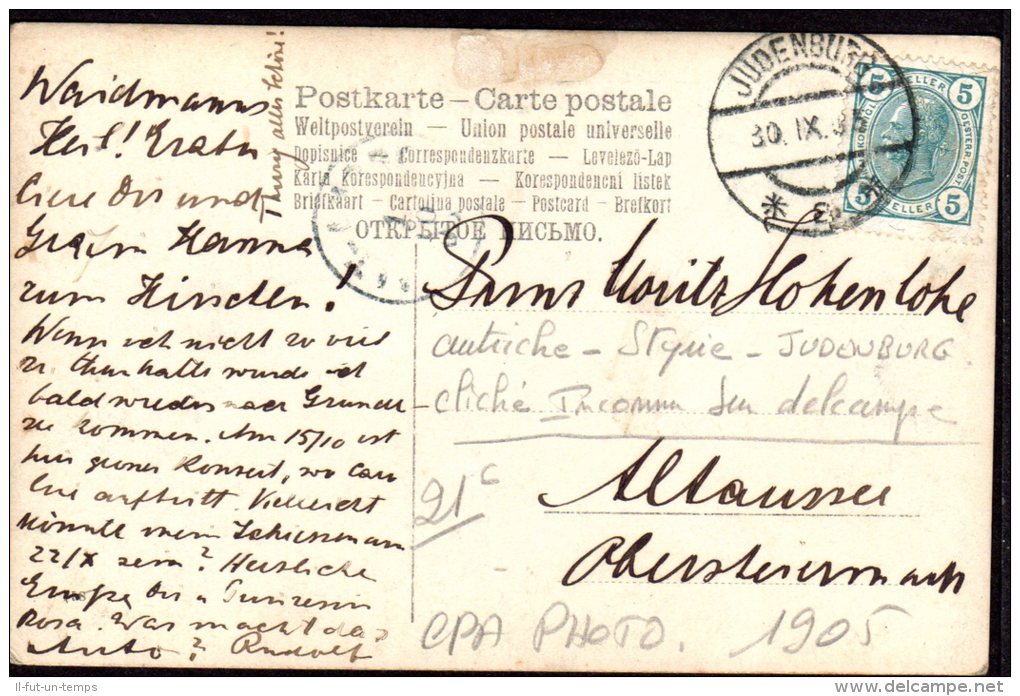 Waidmanns
Heil! Gratu
liere Dir und
Grafin Hanna
zum Hirschen!
Wenn ich nicht so viel
zu thun hätte würde ich
bald wieder nach Grundl
see kommen. Am 15/10 ist
hier grosses Konzert, wo Caro
line auftritt. Vielleicht
könnte mein Schiessen am
22/X sein? Herzliche
Grüsse Dir u Prinzessin
Rosa. Was macht das
Auto? Rudolf
Thury alles Schöne!
Postkarte – Carte postale
Weltpostverein — Union postale universelle
Dopisnice — Correspondenzkarte — Levelező-Lap
Karta korespondencyjna — Korespondencni listek
Briefkaart – Cartolina postale – Postcard – Brefkort
ОТКРЫТОЕ ПИСЬМО.
JUDENBURG
30. IX.
5 HELLER 5
KAISERL. KÖNIGL. OESTERR. POST
5 HELLER 5
Prinz Moritz Hohenlohe
autriche – Styrie – JUDENBURG
cliché Inconnu sur delcampe
Altaussee
21€
Obersteiermark
CPA PHOTO. 1905
il-fut-un-temps